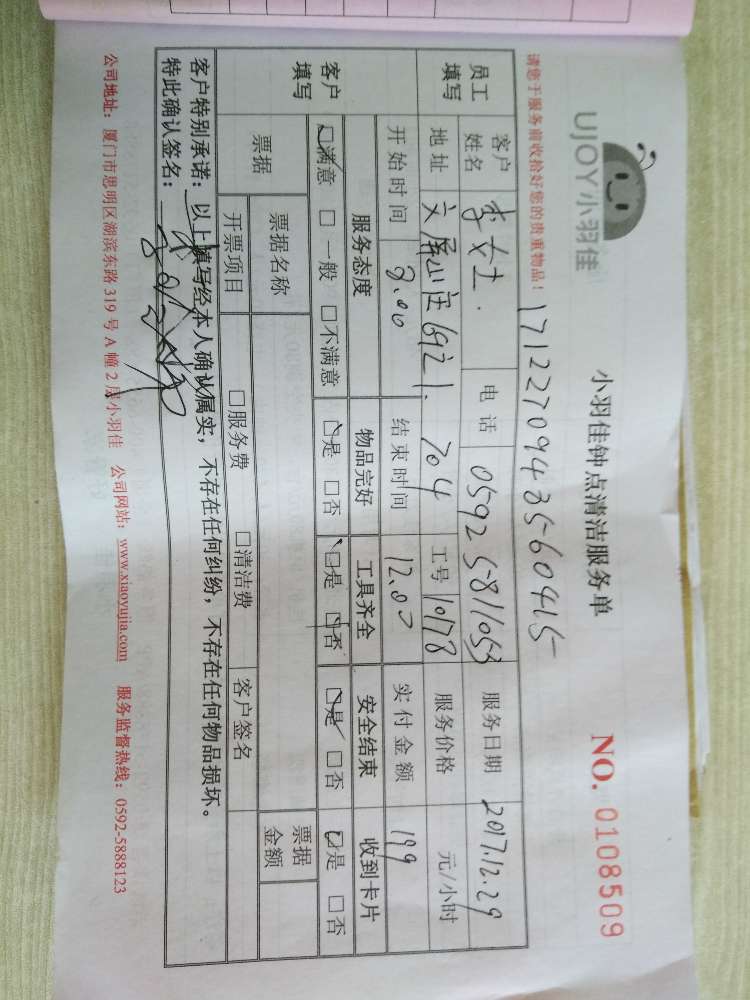 UJOY小羽佳
小羽佳钟点清洁服务单
NO. 0108509
请您于服务前收拾好您的贵重物品！
1712270943560415
员工填写 客户姓名 李女士 电话 0592 5811053 服务日期 2017.12.29
地址 文屏山庄 704 工号 10178 服务价格 元/小时
开始时间 8.00 结束时间 12.00 实付金额 199
客户填写 服务态度 物品完好 工具齐全 安全结束 收到卡片
□满意 □一般 □不满意 □是 □否 □是 □否 □是 □否 □是 □否
票据 票据名称 票据金额
开票项目 □服务费 □清洁费 客户签名
客户特别承诺：以上填写经本人确认属实，不存在任何纠纷，不存在任何物品损坏。
特此确认签名：
公司地址：厦门市思明区湖滨东路319号A幢2层小羽佳 公司网站：www.xiaoyujia.com 服务监督热线：0592-5888123